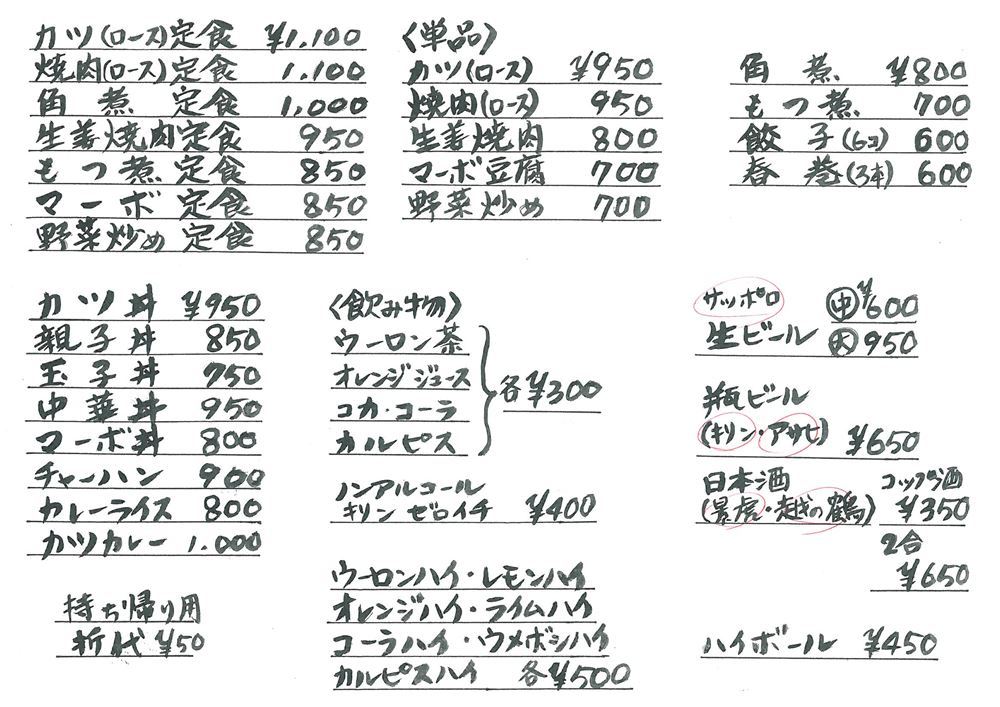 カツ(ロース)定食 ¥1,100
焼肉(ロース)定食 1,100
角煮 定食 1,000
生姜焼肉定食 950
もつ煮 定食 850
マーボ 定食 850
野菜炒め 定食 850
〈単品〉
カツ(ロース) ¥950
焼肉(ロース) 950
生姜焼肉 800
マーボ豆腐 700
野菜炒め 700
角煮 ¥800
もつ煮 700
餃子(6コ) 600
春巻(3本) 600
カツ丼 ¥950
親子丼 850
玉子丼 750
中華丼 950
マーボ丼 800
チャーハン 900
カレーライス 800
カツカレー 1.000
持ち帰り用
折代 ¥50
〈飲み物〉
ウーロン茶
オレンジジュース
コカ・コーラ
カルピス
各¥300
ノンアルコール
キリン ゼロイチ ¥400
ウーロンハイ・レモンハイ
オレンジハイ・ライムハイ
コーラハイ・ウメボシハイ
カルピスハイ 各¥500
サッポロ 中 ¥600
生ビール 大 950
瓶ビール
(キリン・アサヒ) ¥650
日本酒 コップ酒
(景虎・越の鶴) ¥350
2合
¥650
ハイボール ¥450